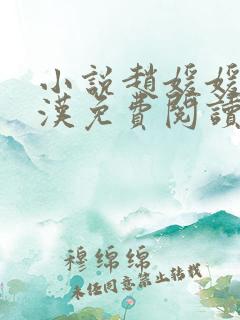 小說趙媛媛
漢免費閱讀
穆绵绵
未经同意禁止转载